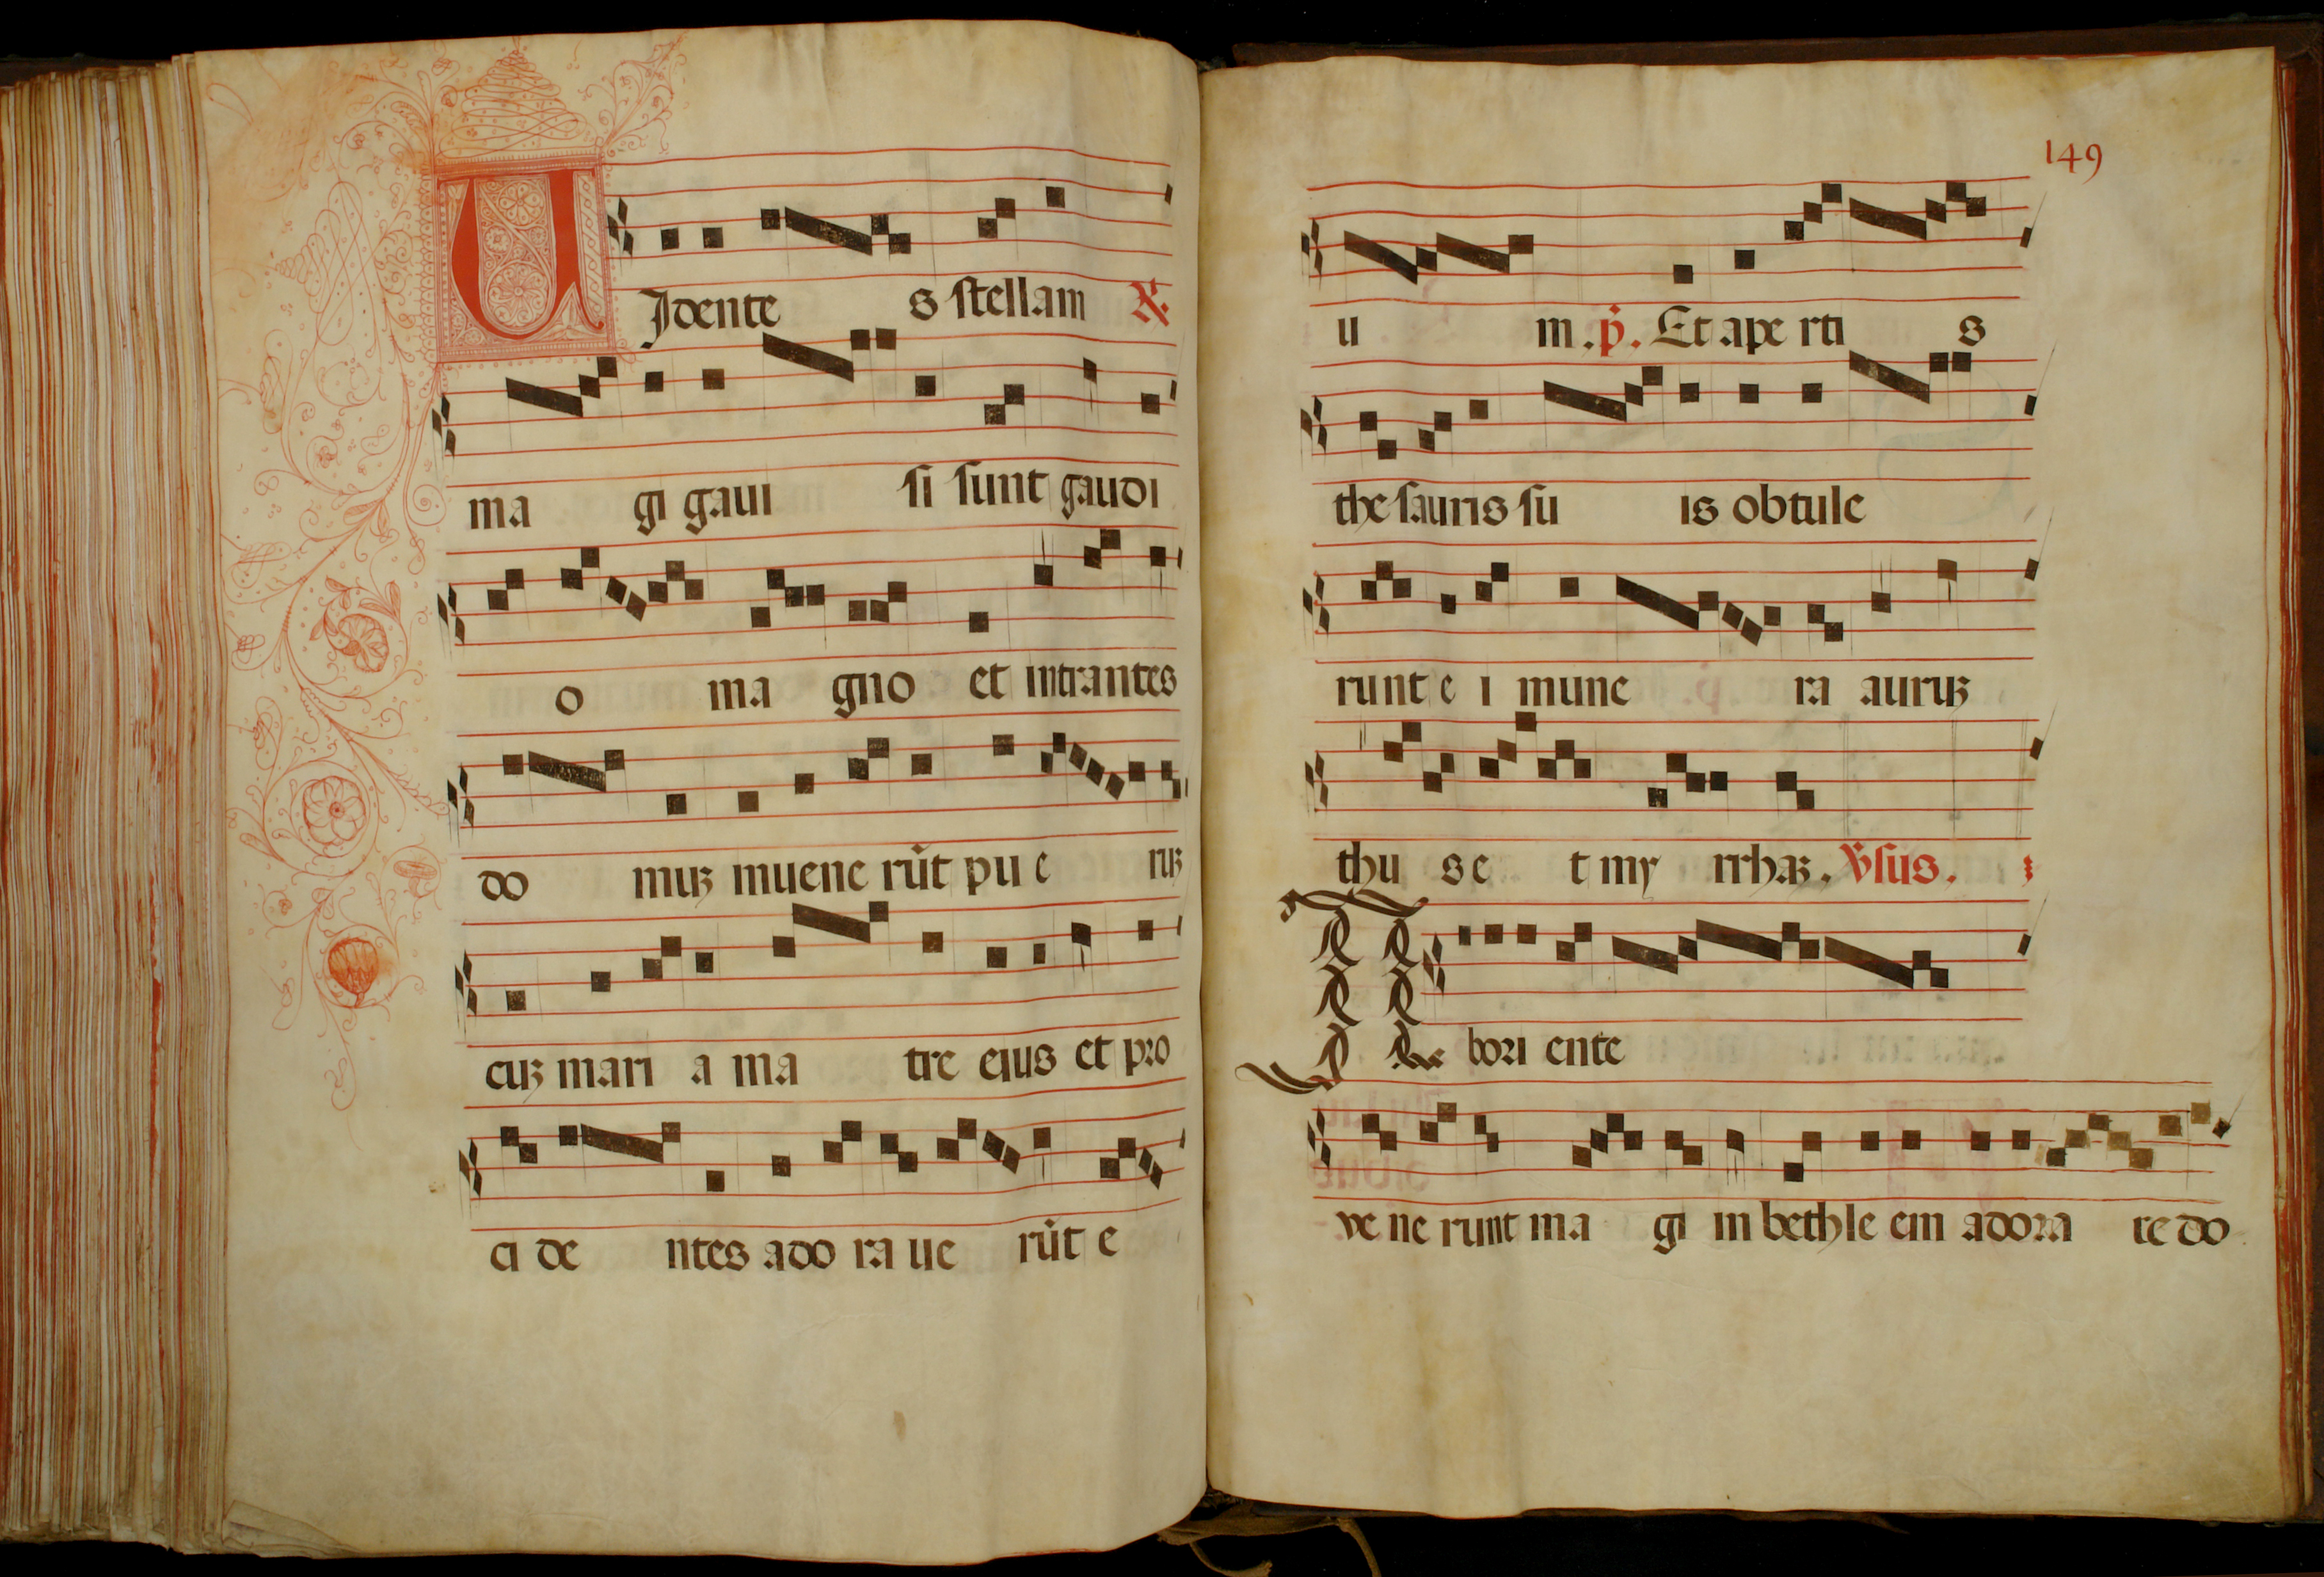 UIdente s stellam ℟.
ma gi gaui si sunt gaudi
o ma gno et intrantes
do muꝫ inuene rūt pu e ruꝫ
cuꝫ mari a ma tre eius et pro
ci de ntes ado ra ue rūt e
149
u m . p̄. Et ape rti s
the sauris su is obtule
runt e i mune ra auruꝫ
thu s e t my rrhaꝫ. ℣sus.
AB bori ente
ve ne runt ma gi in bethle em adora re do